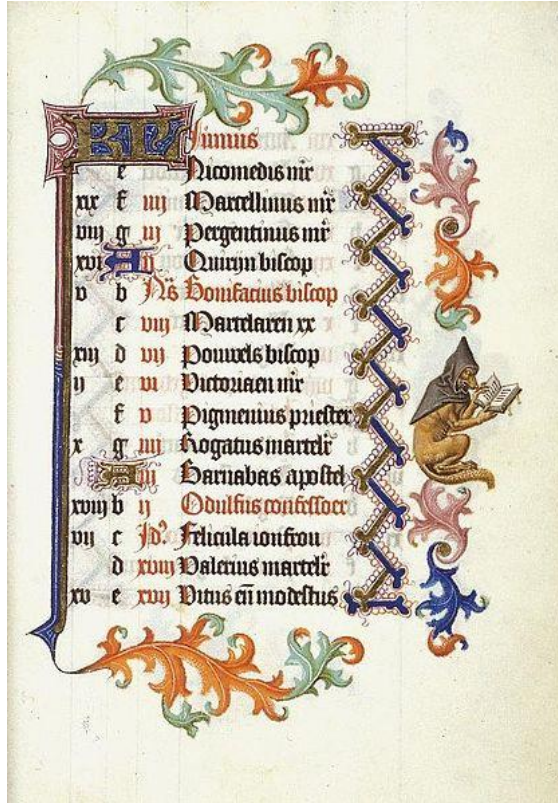 KL Iunius
e Nicomedis mr
xix f iiij Marcellinus mr
viij g iij Pergentinus mr
xvi A ij Quirijn biscop
v b Ns Bonifacius biscop
c viij Martelaren xx
xiij d vij Pouwels biscop
ij e vi Victoriaen mr
f v Pigmenius priester
x g iiij Rogatus martelr
A iij Barnabas apostel
xviij b ij Odulfus confessoer
vij c Id9 Felicula ionfrou
d xviij Valerius martelr
xv e xvij Vitus en modestus